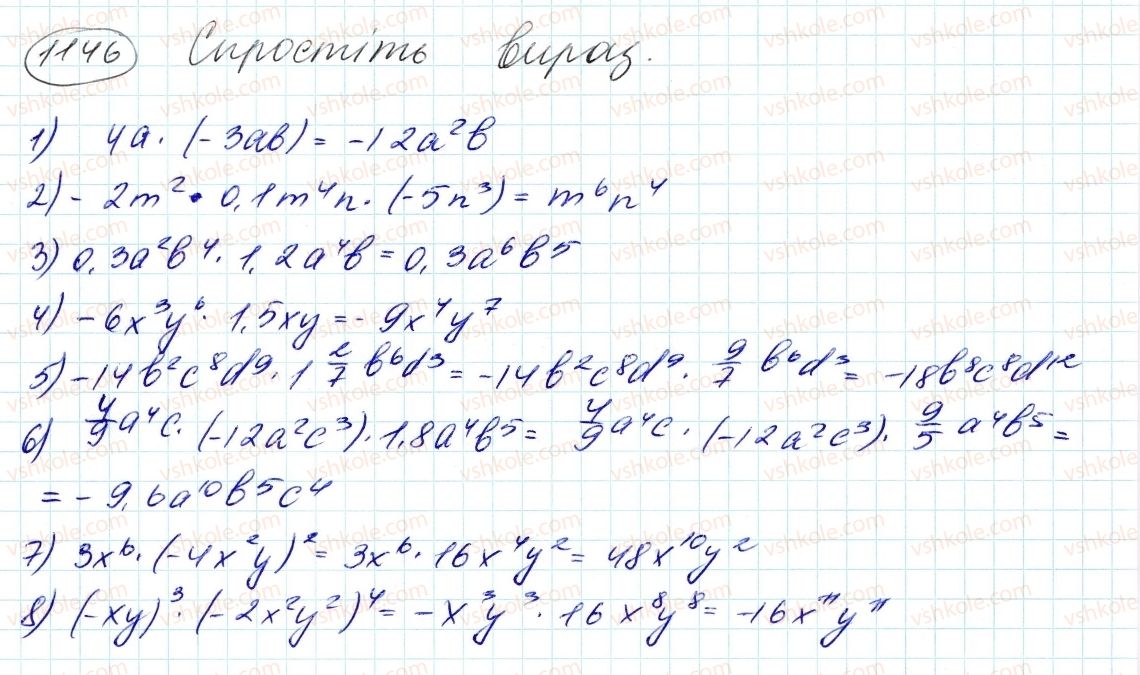 1146 Спростіть вираз.
1) 4a · (-3ab) = -12a²b
2) - 2m² · 0,1m⁴n · (-5n³) = m⁶n⁴
3) 0,3a²b⁴ · 1,2a⁴b = 0,3a⁶b⁵
4) - 6x³y⁶ · 1,5xy = - 9x⁴y⁷
5) -14b²c⁸d⁹ · 1 2/7 b⁶d³ = -14b²c⁸d⁹ · 9/7 b⁶d³ = -18b⁸c⁸d¹²
6) 4/9 a⁴c · (-12a²c³) · 1,8a⁴b⁵ = 4/9 a⁴c · (-12a²c³) · 9/5 a⁴b⁵ =
= - 9,6a¹⁰b⁵c⁴
7) 3x⁶ · (-4x²y)² = 3x⁶ · 16x⁴y² = 48x¹⁰y²
8) (-xy)³ · (-2x²y²)⁴ = -x³y³ · 16x⁸y⁸ = -16x¹¹y¹¹
vshkole.com